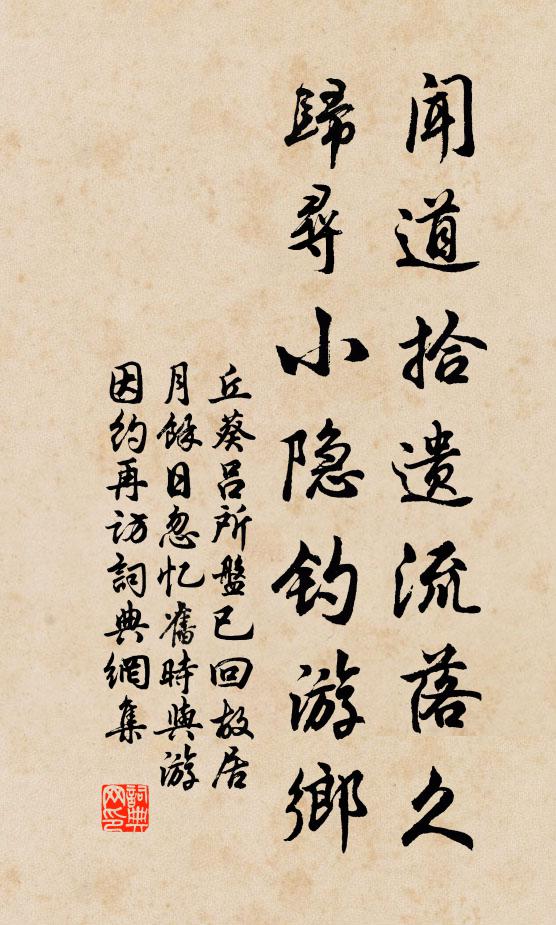 聞道拾遺流落久
歸尋小隐钓游鄉
丘葵吕所盤已回故居
月餘日忽忆舊時與游
因约再访詞典網集
詞典网印